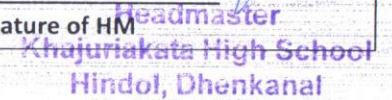 ature of HM
Headmaster
Khajuriakata High School
Hindol, Dhenkanal